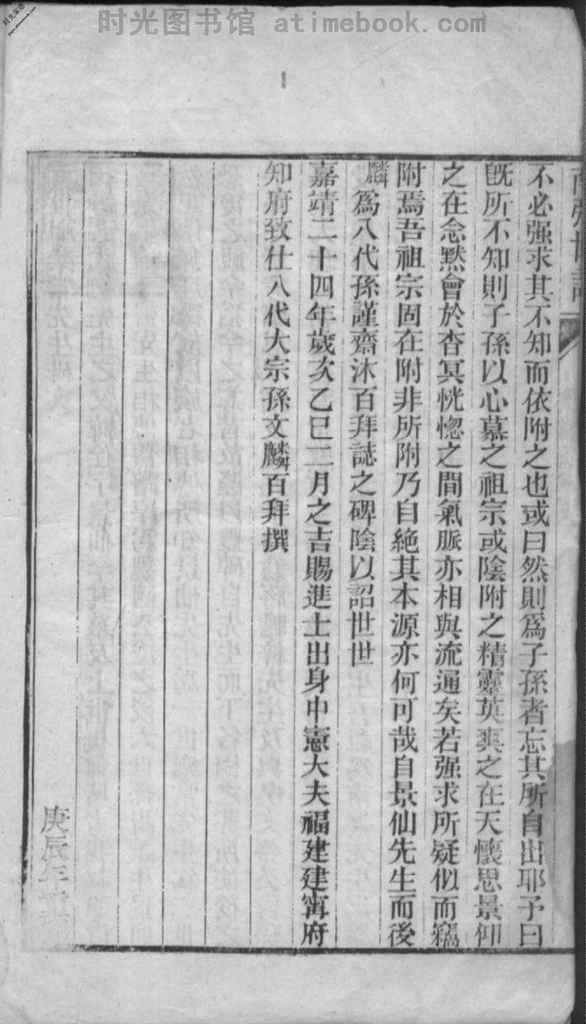 时光图书馆 atimebook.com
不必强求其不知而依附之也或曰然則爲子孫者忘其所自出耶予曰
旣所不知則子孫以心慕之祖宗或陰附之精靈英爽之在天懷思景仰
之在念黙會於杳冥恍惚之間氣脈亦相與流通矣若强求所疑似而竊
附焉吾祖宗固在附非所附乃自絶其本源亦何可哉自景仙先生而後
麟爲八代孫謹齋沐百拜誌之碑陰以詔世世
嘉靖二十四年歲次乙巳二月之吉賜進士出身中憲大夫福建建寧府
知府致仕八代大宗孫文麟百拜撰
庚辰年